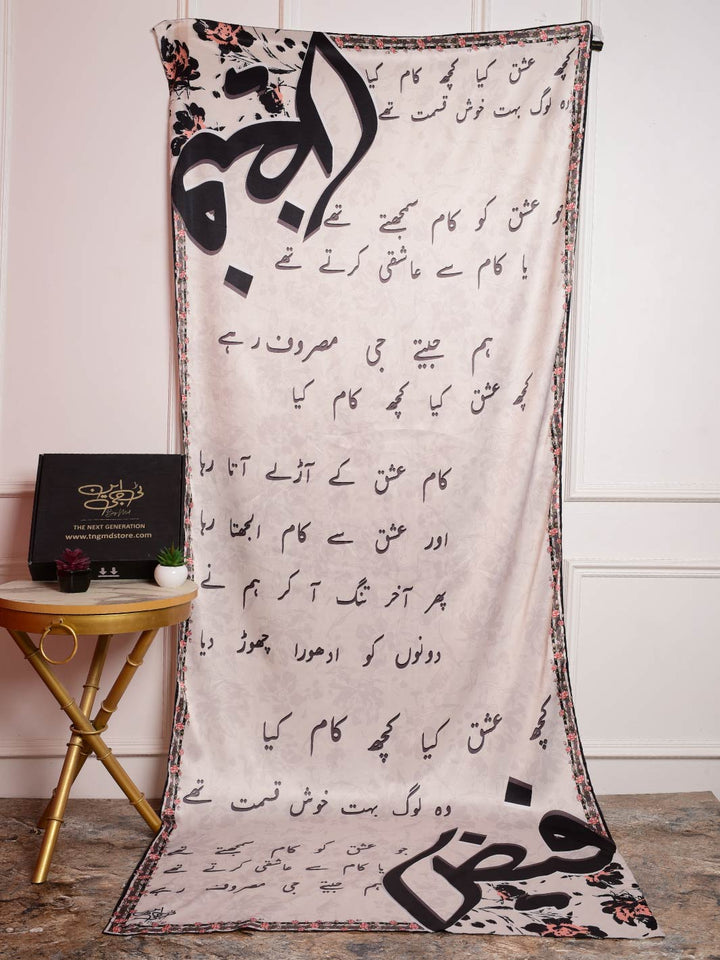 کچھ عشق کیا کچھ کام کیا
وہ لوگ بہت خوش قسمت تھے
جو عشق کو کام سمجھتے تھے
یا کام سے عاشقی کرتے تھے
ہم جیتے جی مصروف رہے
کچھ عشق کیا کچھ کام کیا
کام عشق کے آڑلے آتا رہا
اور عشق سے کام الجھتا رہا
پھر آخر تنگ آ کر ہم نے
دونوں کو ادھورا چھوڑ دیا
THE NEXT GENERATION
www.tngmdstore.com
کچھ عشق کیا کچھ کام کیا
وہ لوگ بہت خوش قسمت تھے
جو عشق کو کام سمجھتے تھے
یا کام سے عاشقی کرتے تھے
ہم جیتے جی مصروف رہے
فیض